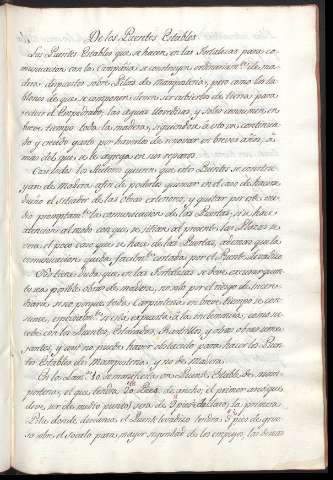 De los Puentes Estables
Los Puentes Estables que se hacen en las Fortalezas para co-
municarse con la Campaña se construyen ordinariam.te de ma-
dera dispuestos sobre Pilas de Mampostería; pero como los ta-
blones de que se componen deven ser cubiertos de tierra para
recivir el Empedrado, las aguas llovedizas, y soles consumen en
breve tiempo toda la madera, siguiendose à esto un continuado
y crecido gasto por haverlas de renovar en breves años, à
mas del que se le agrega en sus reparos.
Casi todos los Autores quieren que estos Puentes se constru-
yan de Madera, afin de poderlos quemar en el caso de
el sitiador de las obras exteriores, y quitar por este me-
dio promptam.te la comunicacion de las Puertas; si se hace
atencion al modo con que se sitian al presente las Plazas se
vera el poco caso que se hace de las Puertas, ademas que la
comunicacion queda facilm.te cortada por el Puente Levadizo
No tiene duda que en las Fortalezas se deve escusar quan-
to sea posible obras de madera, no solo por el riesgo de incen-
diarse, si no porque toda Carpinteria en breve tiempo se con-
sume, especialm.te si esta expuesta à la inclemencia, como su-
cede con los Puentes, Estacadas, Rastrillos, y otras obras seme-
jantes, y assi no puede haver obstaculo para hacer los Puen-
tes Estables de Mamposteria, y no de Madera.
En la Lam.a 10 se manifiesta un Puente Estable de Mam-
posteria, el que tendra 10 Pies de ancho; el primer arco (que
deve ser de medio punto) sera de 9 pies de claro; la primera
Pila donde descansa el Puente levadizo tendra 5 pies de grue-
so sobre el Socalo para mayor seguridad de los empujes, las demas